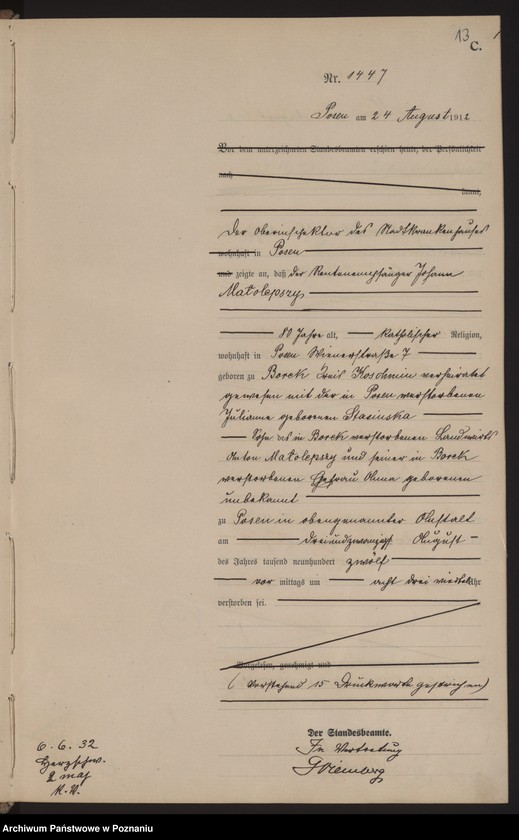 13
C.
Nr. 1447
Posen am 24 August 1912
Vor dem unterzeichneten Standesbeamten erschien heute, der Persönlichkeit
nach
kannt,
Der Oberinspektor des Stadtkrankenhauses
wohnhaft in Posen
und zeigte an, daß der Rentenempfänger Johann
Matolepszy
80 Jahre alt, katholischer Religion,
wohnhaft in Posen Wienerstraße 7
geboren zu Borek Kreis Koschmin verheiratet
gewesen mit der in Posen verstorbenen
Julianne geborenen Stasinska
Sohn des in Borek verstorbenen Landwirts
Anton Matolepszy und seiner in Borek
verstorbenen Ehefrau Anna geborenen
unbekannt
zu Posen in obengenannter Anstalt
am dreiundzwanzigst August
des Jahres tausend neunhundert zwölf
vor mittags um acht drei viertel Uhr
verstorben sei.
Vorgelesen, genehmigt und
(Vorstehend 15 Druckworte gestrichen)
Der Standesbeamte.
In Vertretung
6. 6. 32
2 mal
Archiwum Państwowe w Poznaniu